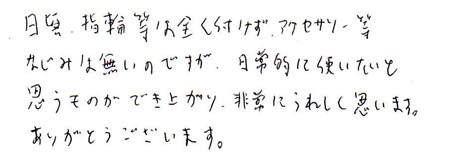 日頃、指輪等は全く付けず、アクセサリー等
なじみは無いのですが、日常的に使いたいと
思うものができ上がり、非常にうれしく思います。
ありがとうございます。